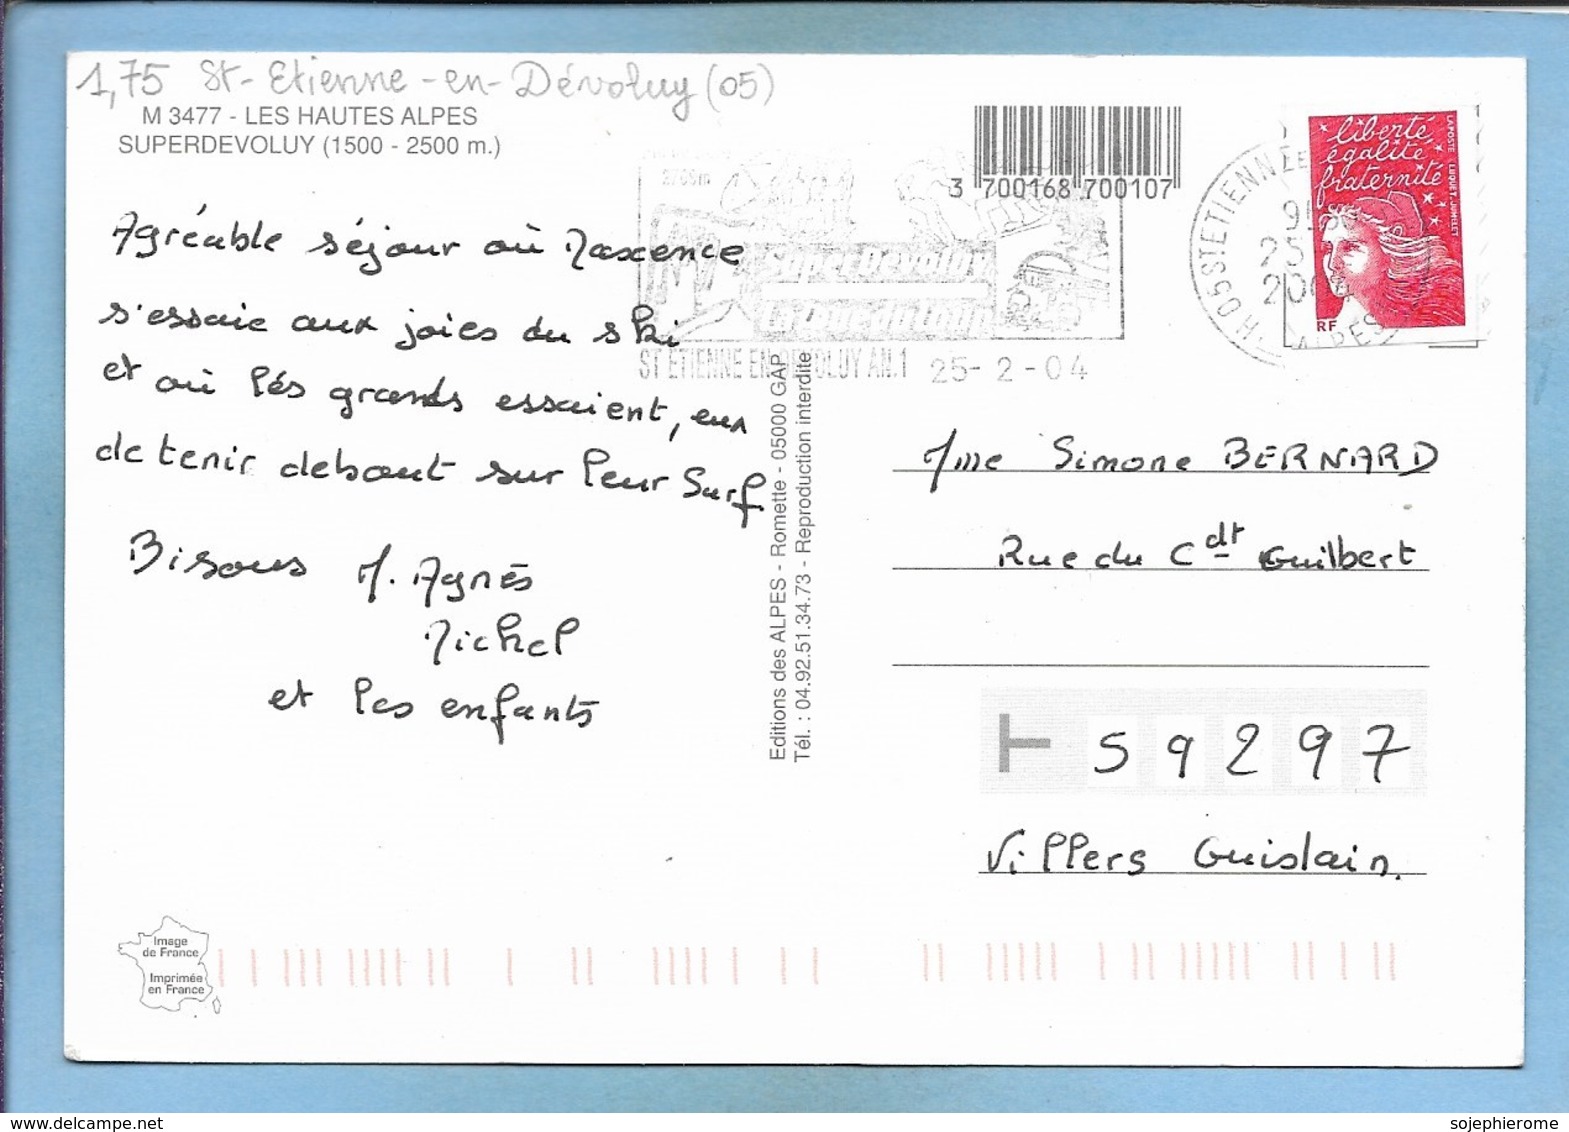 1,75 St-Etienne-en-Dévoluy (05)
M 3477 - LES HAUTES ALPES
SUPERDEVOLUY (1500 - 2500 m.)
3 700168 700107
Agréable séjour où Maxence
s'essaie aux joies du ski
et où lés grands essaient, eux
de tenir debout sur leur Surf.
Bisous M. Agnès
Michel
et les enfants
Super Devoluy
ST ETIENNE EN DEVOLUY AN.1 25-2-04
05 ST ETIENNE E
25
liberté
égalité
fraternité
LA POSTE
RF
Editions des ALPES - Romette - 05000 GAP
Tél. : 04.92.51.34.73 - Reproduction interdite
Mme Simone BERNARD
Rue du Cdt Guilbert
59297
Villers Guislain.
Image
de France
Imprimée
en France
www.delcampe.net
sojephierome